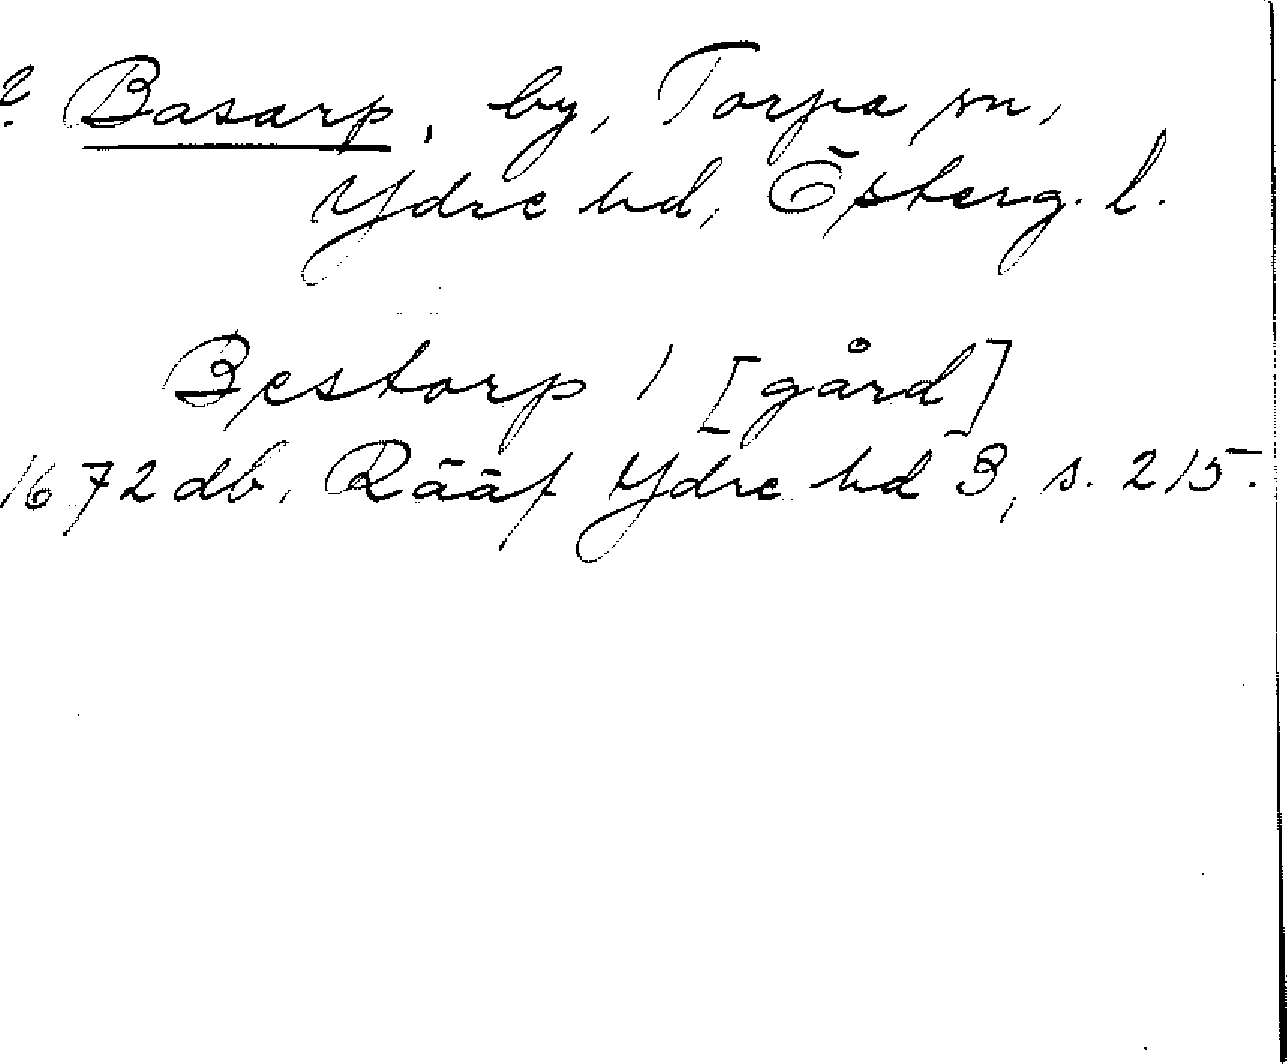 ? Basarp, by, Torpa sn,
Ydre hd, Österg. l.
Bestorp 1 [gård]
1672 db. Rääf Ydre hd 3, s. 215.